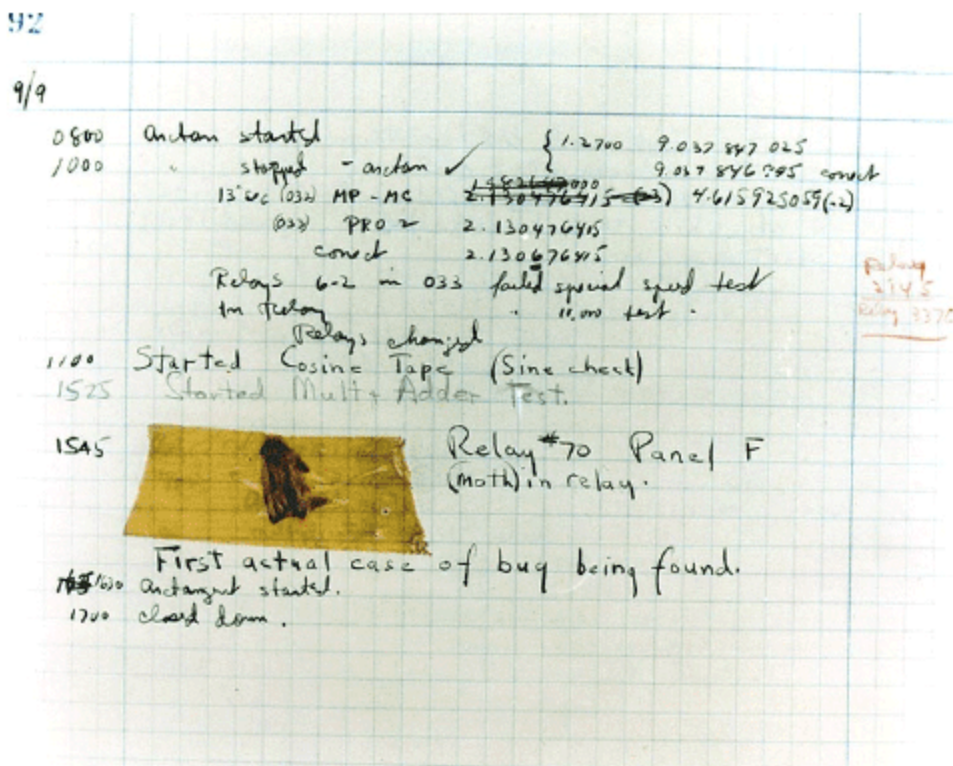 92
9/9
0800 arctan started { 1.2700 9.037 847 025
1000 " stopped - arctan ✓ 9.037 846 995 correct
13"uc (032) MP - MC 2.130476415 (-3) 4.615925059(-2)
(033) PRO 2 2.130476415
correct 2.130676415
Relays 6-2 in 033 failed special speed test
in Relay " 11,000 test .
Relay
2145
Relay 3370
Relays changed
1100 Started Cosine Tape (Sine check)
1525 Started Mult + Adder Test.
1545 Relay #70 Panel F
(moth) in relay.
First actual case of bug being found.
1630 arctangent started.
1700 closed down.